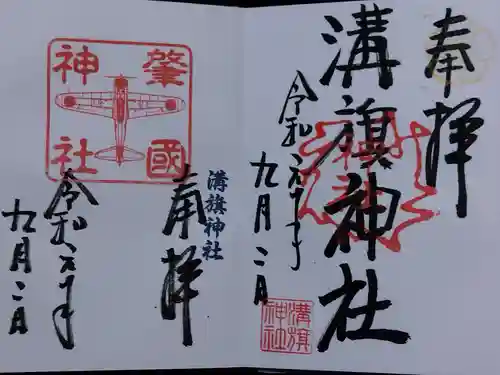 奉拝
溝旗神社
溝旗神社
令和六年
九月二日
肇國神社
溝旗神社
奉拝
令和六年
九月二日